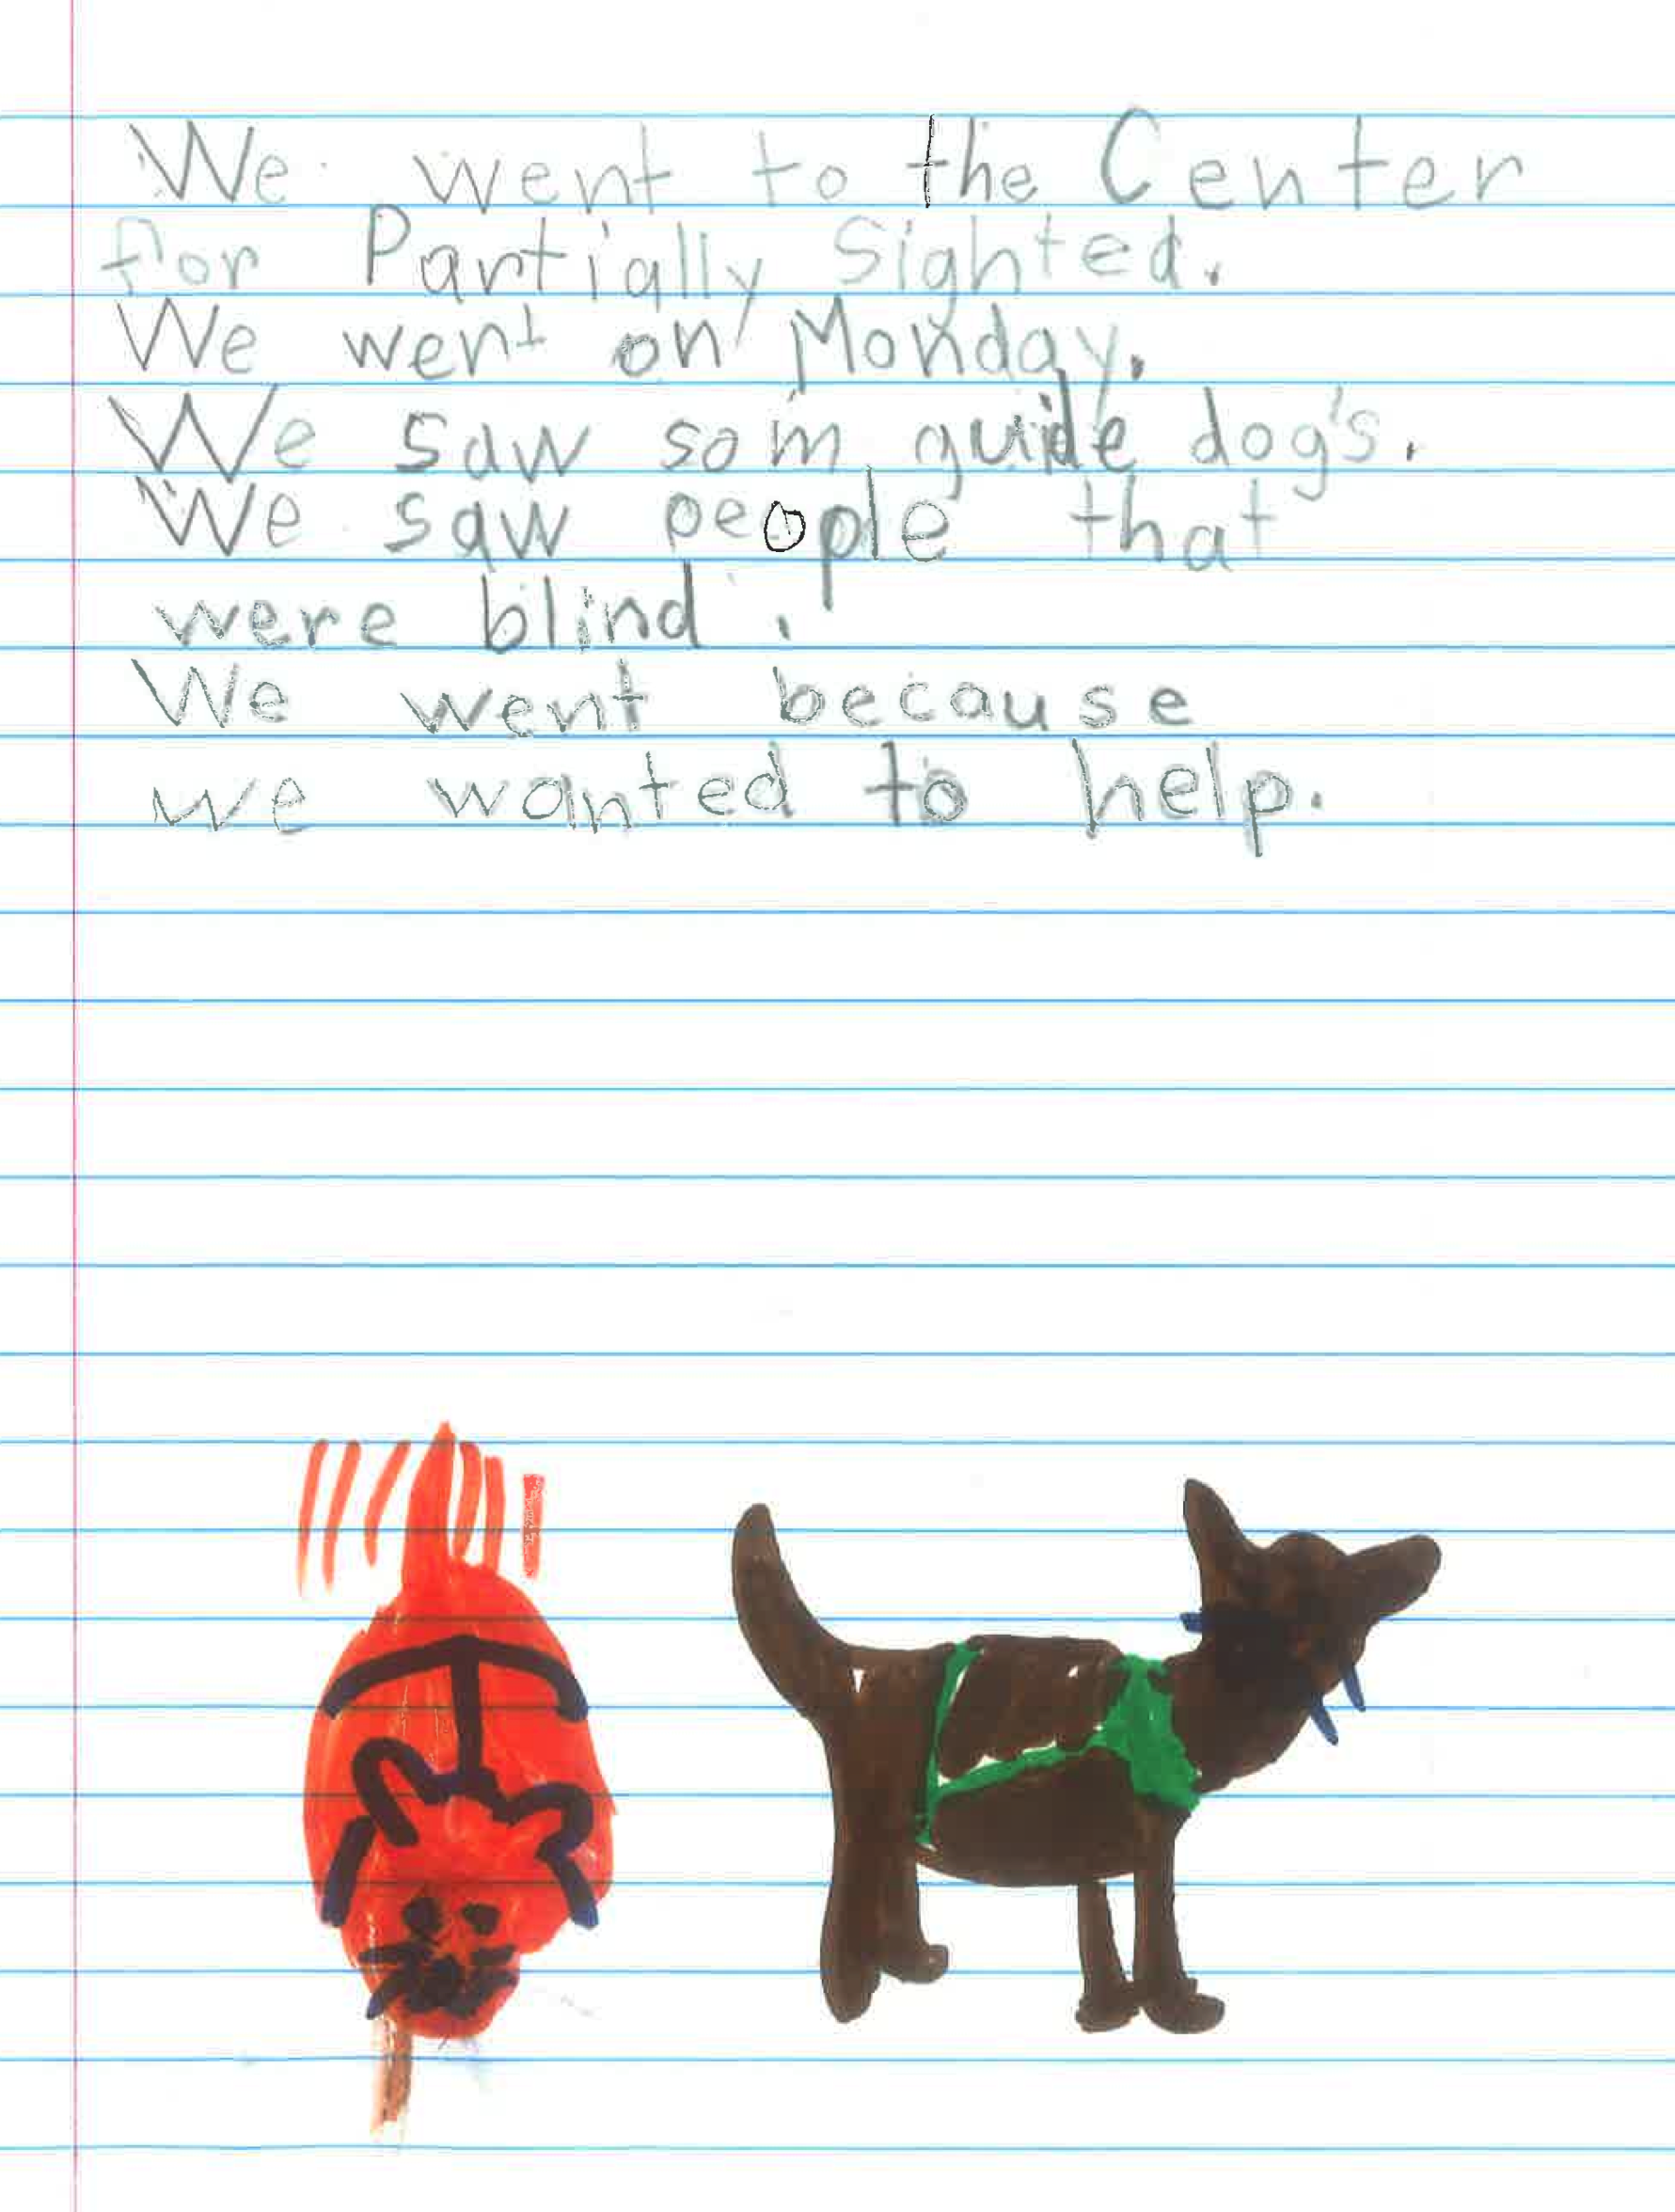 We went to the Center
for Partially Sighted.
We went on Monday.
We saw som guide dog's.
We saw people that
were blind.
We went because
we wanted to help.